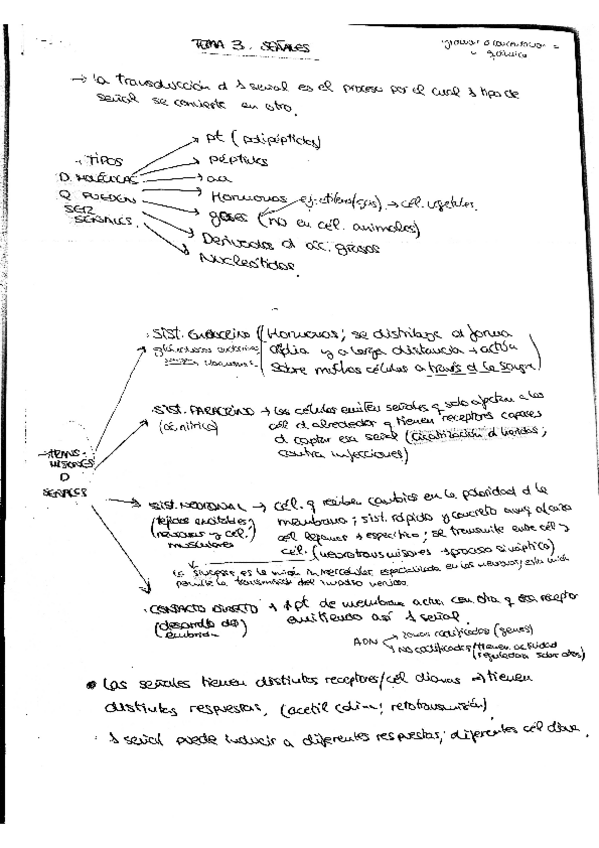 TEMA 3. SEÑALES
química
→ La transducción d 1 señal es el proceso por el cual 1 tipo de
señal se convierte en otro.
→ pt (polipéptidos)
→ péptidos
→ aa
→ Hormonas ej: etileno (gas) → cél. vegetales.
→ gases (no en cél. animales)
→ Derivados d ác. grasos
→ Nucleótidos.
TIPOS
D MOLÉCULAS
Q PUEDEN
SER
SEÑALES.
SIST. ENDOCRINO (Hormonas; se distribuye d forma
amplia y a larga distancia → actúa
sobre muchas células a través d la sangre)
SIST. PARACRINO → Las células emiten señales q solo afectan a las
(óx. nítrico) cél d alrededor q tienen receptores capaces
d captar esa señal (cicatrización d heridas;
contra infecciones)
TRANS-
MISIONES
D
SEÑALES
SIST. NEURONAL → cél. q reciben cambios en la polaridad d la
(tejidos excitables) membrana; sist. rápido y concreto
(neuronas y cél. específico; se transmite entre cél y
musculares cél. (neurotransmisores → proceso sináptico)
La sinapsis es la unión intercelular especializada en las neuronas; esta unión
permite la transmisión del impulso nervioso.
CONTACTO DIRECTO → 1 pt de membrana actúa con otra q es a receptor
(desarrollo del emitiendo así 1 señal.
embrión)
ADN zonas codificadas (genes)
No codificadas/tienen actividad
(reguladora sobre otros)
• Las señales tienen distintos receptores/cél dianas → tienen
distintas respuestas, (acetil colina; retrotransmisión)
1 señal puede inducir a diferentes respuestas; diferentes cél diana.